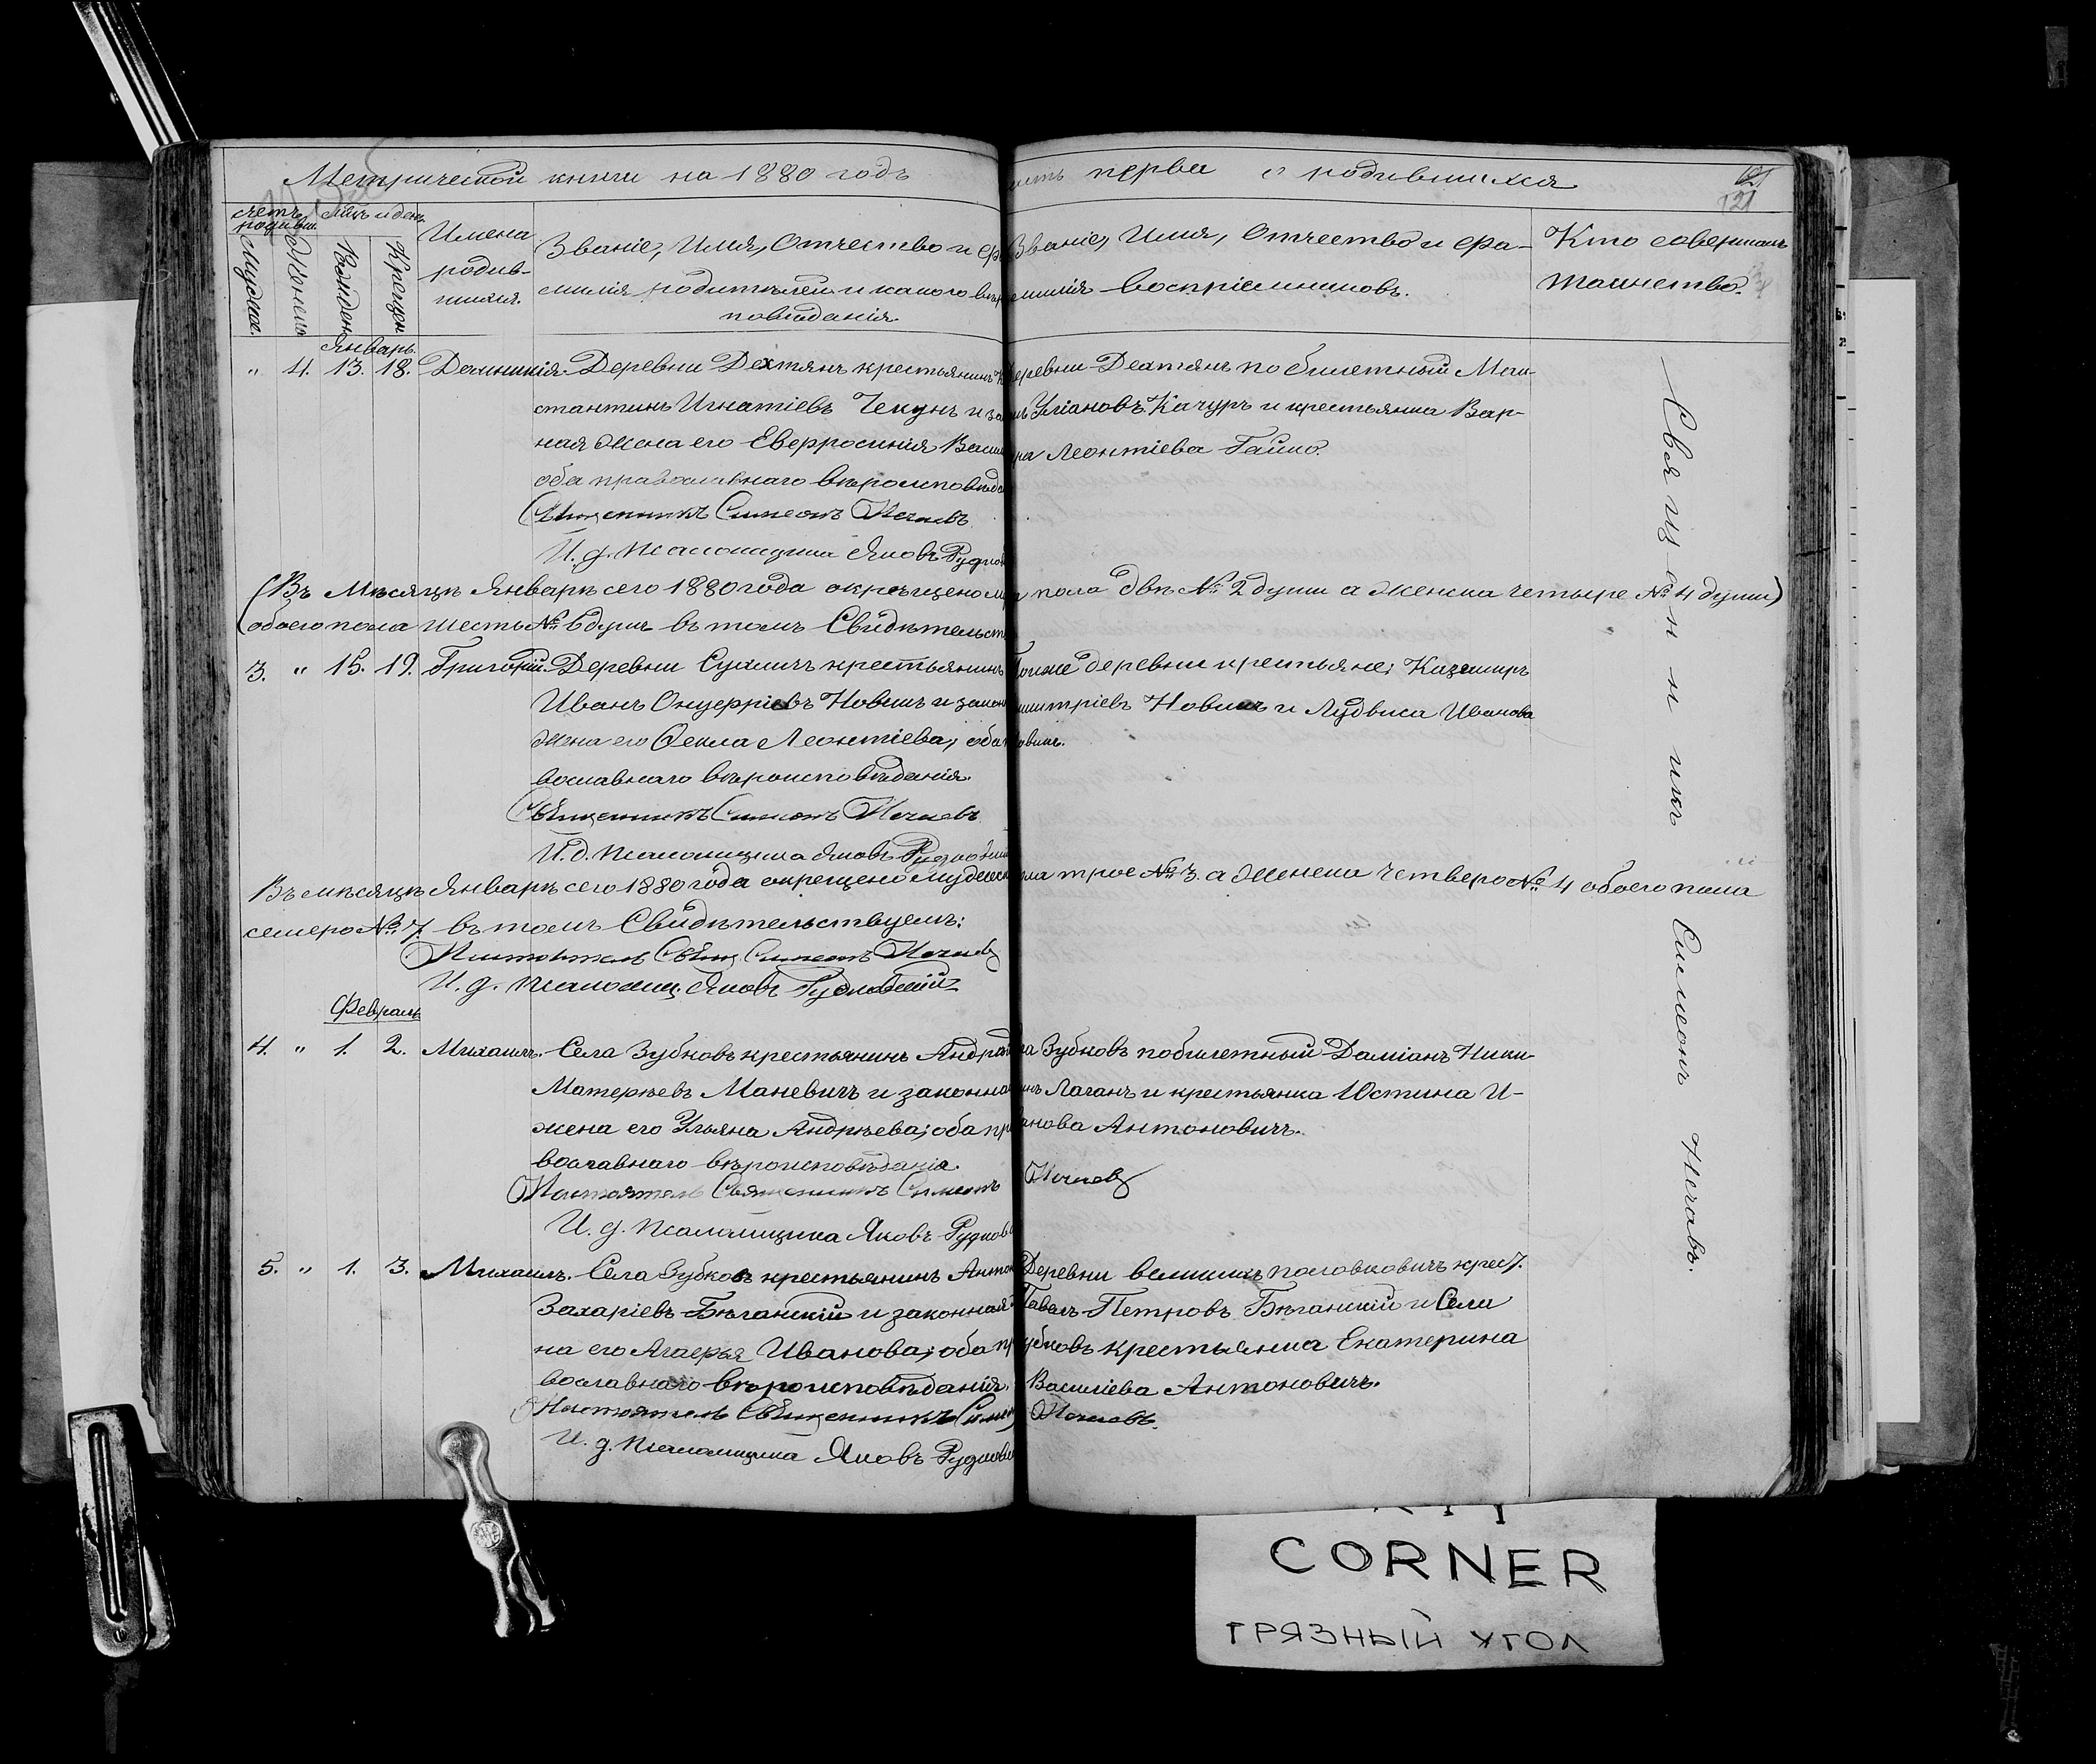 Метрической книги на 1880 годъ
сть перва о родившихся
121
счетъ родивш.
Мѣс. и день
Мужска.
Женска
Рожден
Крещен
Имена
родив-
шихся.
Званіе, Имя, Отчество и фа
милія родителей и какого вѣро
повѣданія
Званіе, Имя, Отчество и Фа-
милія воспріемниковъ.
Кто совершалъ
таинство.
Январь.
" 4. 13. 18. Домникія. Деревни Дехтянъ крестьянинъ К
стантинъ Игнатіевъ Чекунъ и зак
ная жена его Еверросинія Васил
оба православнаго вѣроисповѣда
Священникъ Симеонъ Нечаевъ
И. д. псаломщика Яковъ Руднов
Деревни Дехтянъ побилетный Мак-
мъ Уліановъ Качуръ и крестьянка Вар-
ра Леонтіева Гайко.
(Въ Мѣсяцѣ Январѣ сего 1880 года окрещено м а пола двѣ № 2 души а женска четыре № 4 души)
обоего пола шесть № 6 душъ въ томъ Свидѣтельст
3. " 15. 19. Григорій. Деревни крестьянинъ
Иванъ Онуфріевъ Новикъ и закон
жена его Ѳекла Леонтіева, оба
вославнаго вѣроисповѣданія.
Священникъ Симеонъ Нечаевъ
И. д. псаломщика Яковъ Рудновскій
Тойже деревни крестьяне; Каземиръ
митріевъ Новикъ и Людвиса Иванова
овикъ.
Въ мѣсяцѣ Январѣ сего 1880 года окрещено мужеск ола трое № 3. а женска четверо № 4 обоего пола
семеро № 7. въ томъ Свидѣтельствуемъ:
Настоятель Свящ Симеонъ Нечаевъ
И. д. псаломщ. Яковъ Рудновскій
Февраль
4. " 1. 2. Михаилъ. Села Зубковъ крестьянинъ Андрей
Матерѣевъ Маневичъ и законна
жена его Ульяна Андрѣева; оба пр
вославнаго вѣроисповѣданія.
Настоятель Священникъ Симеонъ Нечаевъ
И. д. псаломщика Яковъ Руднов
ла Зубковъ побилетный Даміанъ Ники-
инъ Лаганъ и крестьянка Юстина И-
анова Антоновичъ.
5. " 1. 3. Михаилъ. Села Зубковъ крестьянинъ Антон
Захаріевъ Бѣганскій и законная
на его Агаерья Иванова; оба пр
вославнаго вѣроисповѣданія.
Настоятель Священникъ Симеон Нечаевъ.
И. д. псаломщика Яковъ Руднови
Деревни великихъ половковичъ крест.
Павелъ Петровъ Бѣганскій и Села
убковъ крестьянка Екатерина
Василіева Антоновичъ.
Священникъ Симеонъ Нечаевъ.
CORNER
ГРЯЗНЫЙ УГОЛ